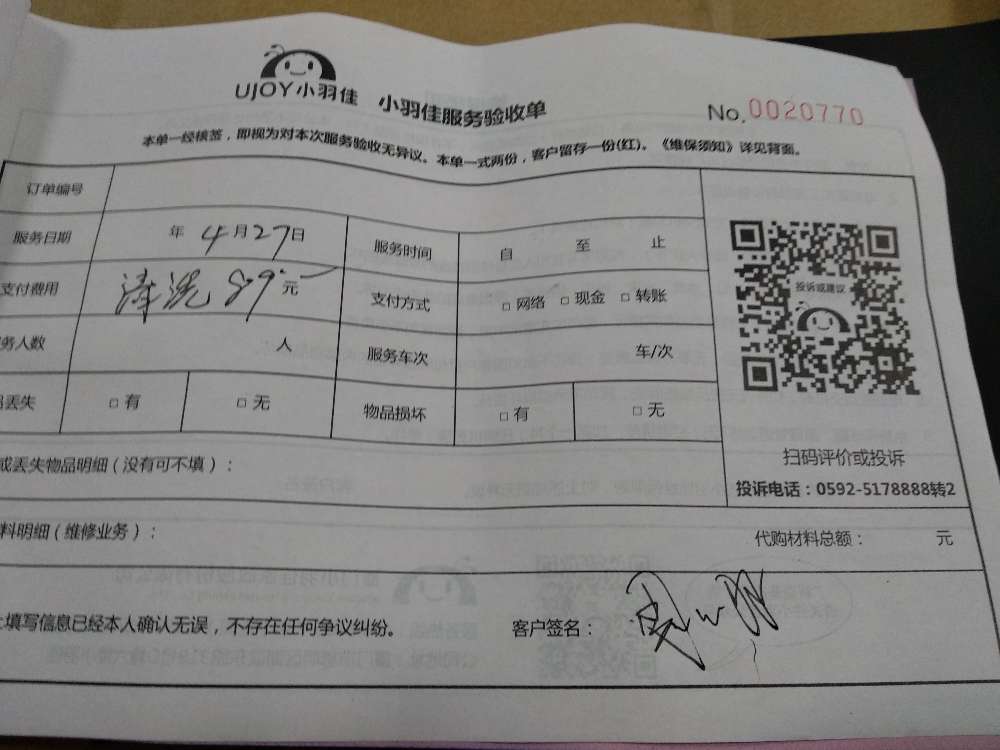 UJOY小羽佳 小羽佳服务验收单 No.0020770
本单一经核签，即视为对本次服务验收无异议。本单一式两份，客户留存一份(红)。《维保须知》详见背面。
订单编号
服务日期 年 4月27日 服务时间 自 至 止
支付费用 清洗 89元 支付方式 □ 网络 □ 现金 □ 转账
务人数 人 服务车次 车/次
丢失 □ 有 □ 无 物品损坏 □ 有 □ 无
投诉或建议
扫码评价或投诉
投诉电话：0592-5178888转2
或丢失物品明细（没有可不填）：
料明细（维修业务）： 代购材料总额： 元
上填写信息已经本人确认无误，不存在任何争议纠纷。 客户签名：